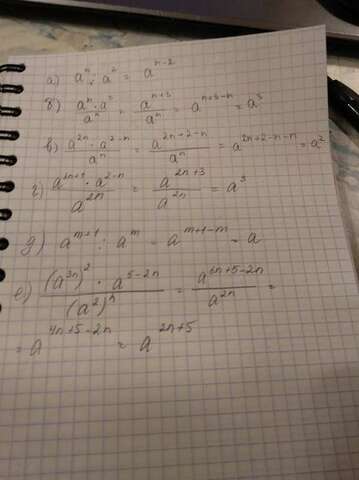 а) aⁿ : a² = aⁿ⁻²
б) (aⁿ · a³)/aⁿ = aⁿ⁺³/aⁿ = aⁿ⁺³⁻ⁿ = a³
в) (a²ⁿ · a²⁻ⁿ)/aⁿ = a²ⁿ⁺²⁻ⁿ/aⁿ = a²ⁿ⁺²⁻ⁿ⁻ⁿ = a²
г) (a²ⁿ⁺¹ · a²⁻ⁿ)/a²ⁿ = a²ⁿ⁺³/a²ⁿ = a³
д) aᵐ⁺¹ : aᵐ = aᵐ⁺¹⁻ᵐ = a
е) ((a³ⁿ)² · a⁵⁻²ⁿ)/(a²)ⁿ = a⁶ⁿ⁺⁵⁻²ⁿ/a²ⁿ =
= a⁴ⁿ⁺⁵⁻²ⁿ = a²ⁿ⁺⁵